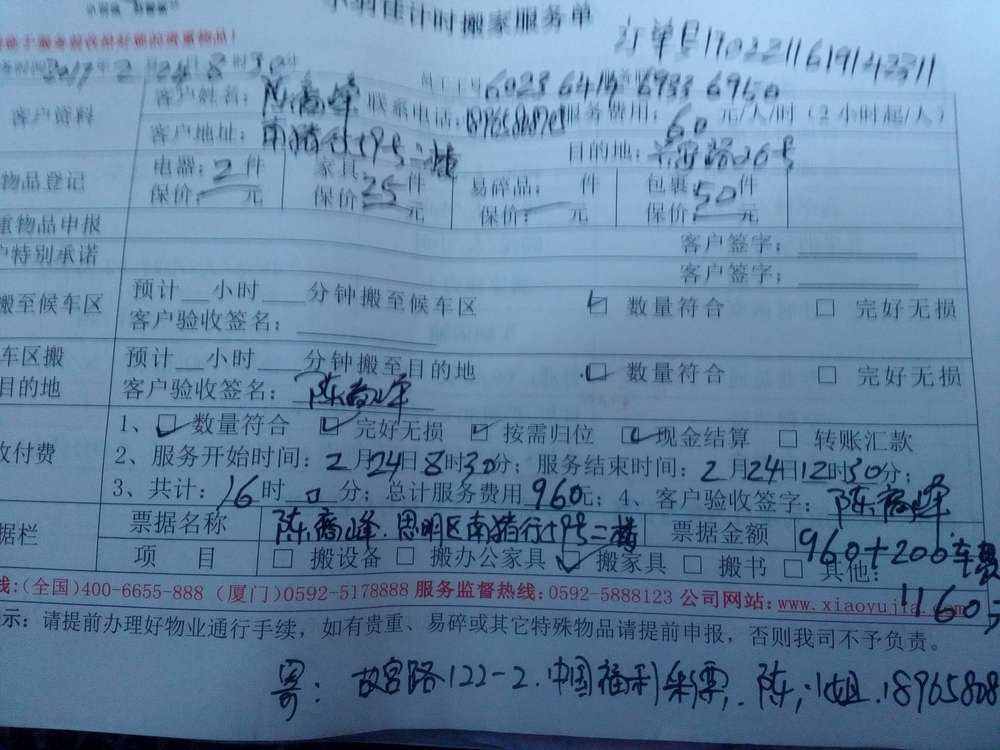 计时搬家服务单
订单号1702211619142311
2017年2月24日8时30分 员工工号 6023 6414 6933 6950
客户资料 客户姓名: 联系电话: 服务费用:60元/人/时(2小时起/人)
客户地址: 目的地:
物品登记 电器:2件 家具25件 易碎品: 件 包裹50件
保价: 元 保价: 元 保价: 元 保价: 元
重物品申报 客户签字:
户特别承诺 客户签字:
搬至候车区 预计__小时__分钟搬至候车区 ☑ 数量符合 □ 完好无损
客户验收签名:
车区搬 预计__小时__分钟搬至目的地 ☑ 数量符合 □ 完好无损
目的地 客户验收签名:
1、☑数量符合 ☑完好无损 ☑按需归位 ☑现金结算 □ 转账汇款
收付费 2、服务开始时间:2月24日8时30分;服务结束时间:2月24日12时30分;
3、共计:16时0分;总计服务费用960元;4、客户验收签字:
据栏 票据名称 票据金额 960+200车费
项 目 □ 搬设备 □ 搬办公家具 ☑ 搬家具 □ 搬书 □ 其他: 1160
线:(全国)400-6655-888 (厦门)0592-5178888 服务监督热线:0592-5888123 公司网站:www.xiaoyujia.
示:请提前办理好物业通行手续,如有贵重、易碎或其它特殊物品请提前申报,否则我司不予负责。
寄:故宫路122-2.中国福利彩票,陈小姐.18965808